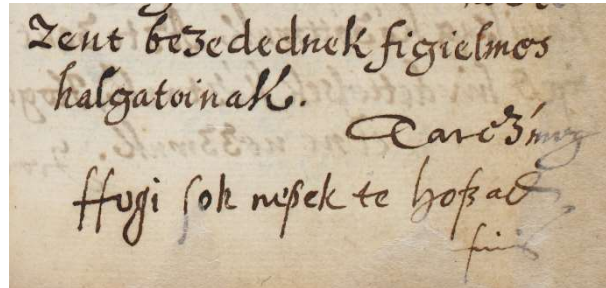 Zent bezedednek figielmos
halgatoinak.
Tarcz' meg
Hogi sok nepek te hozad